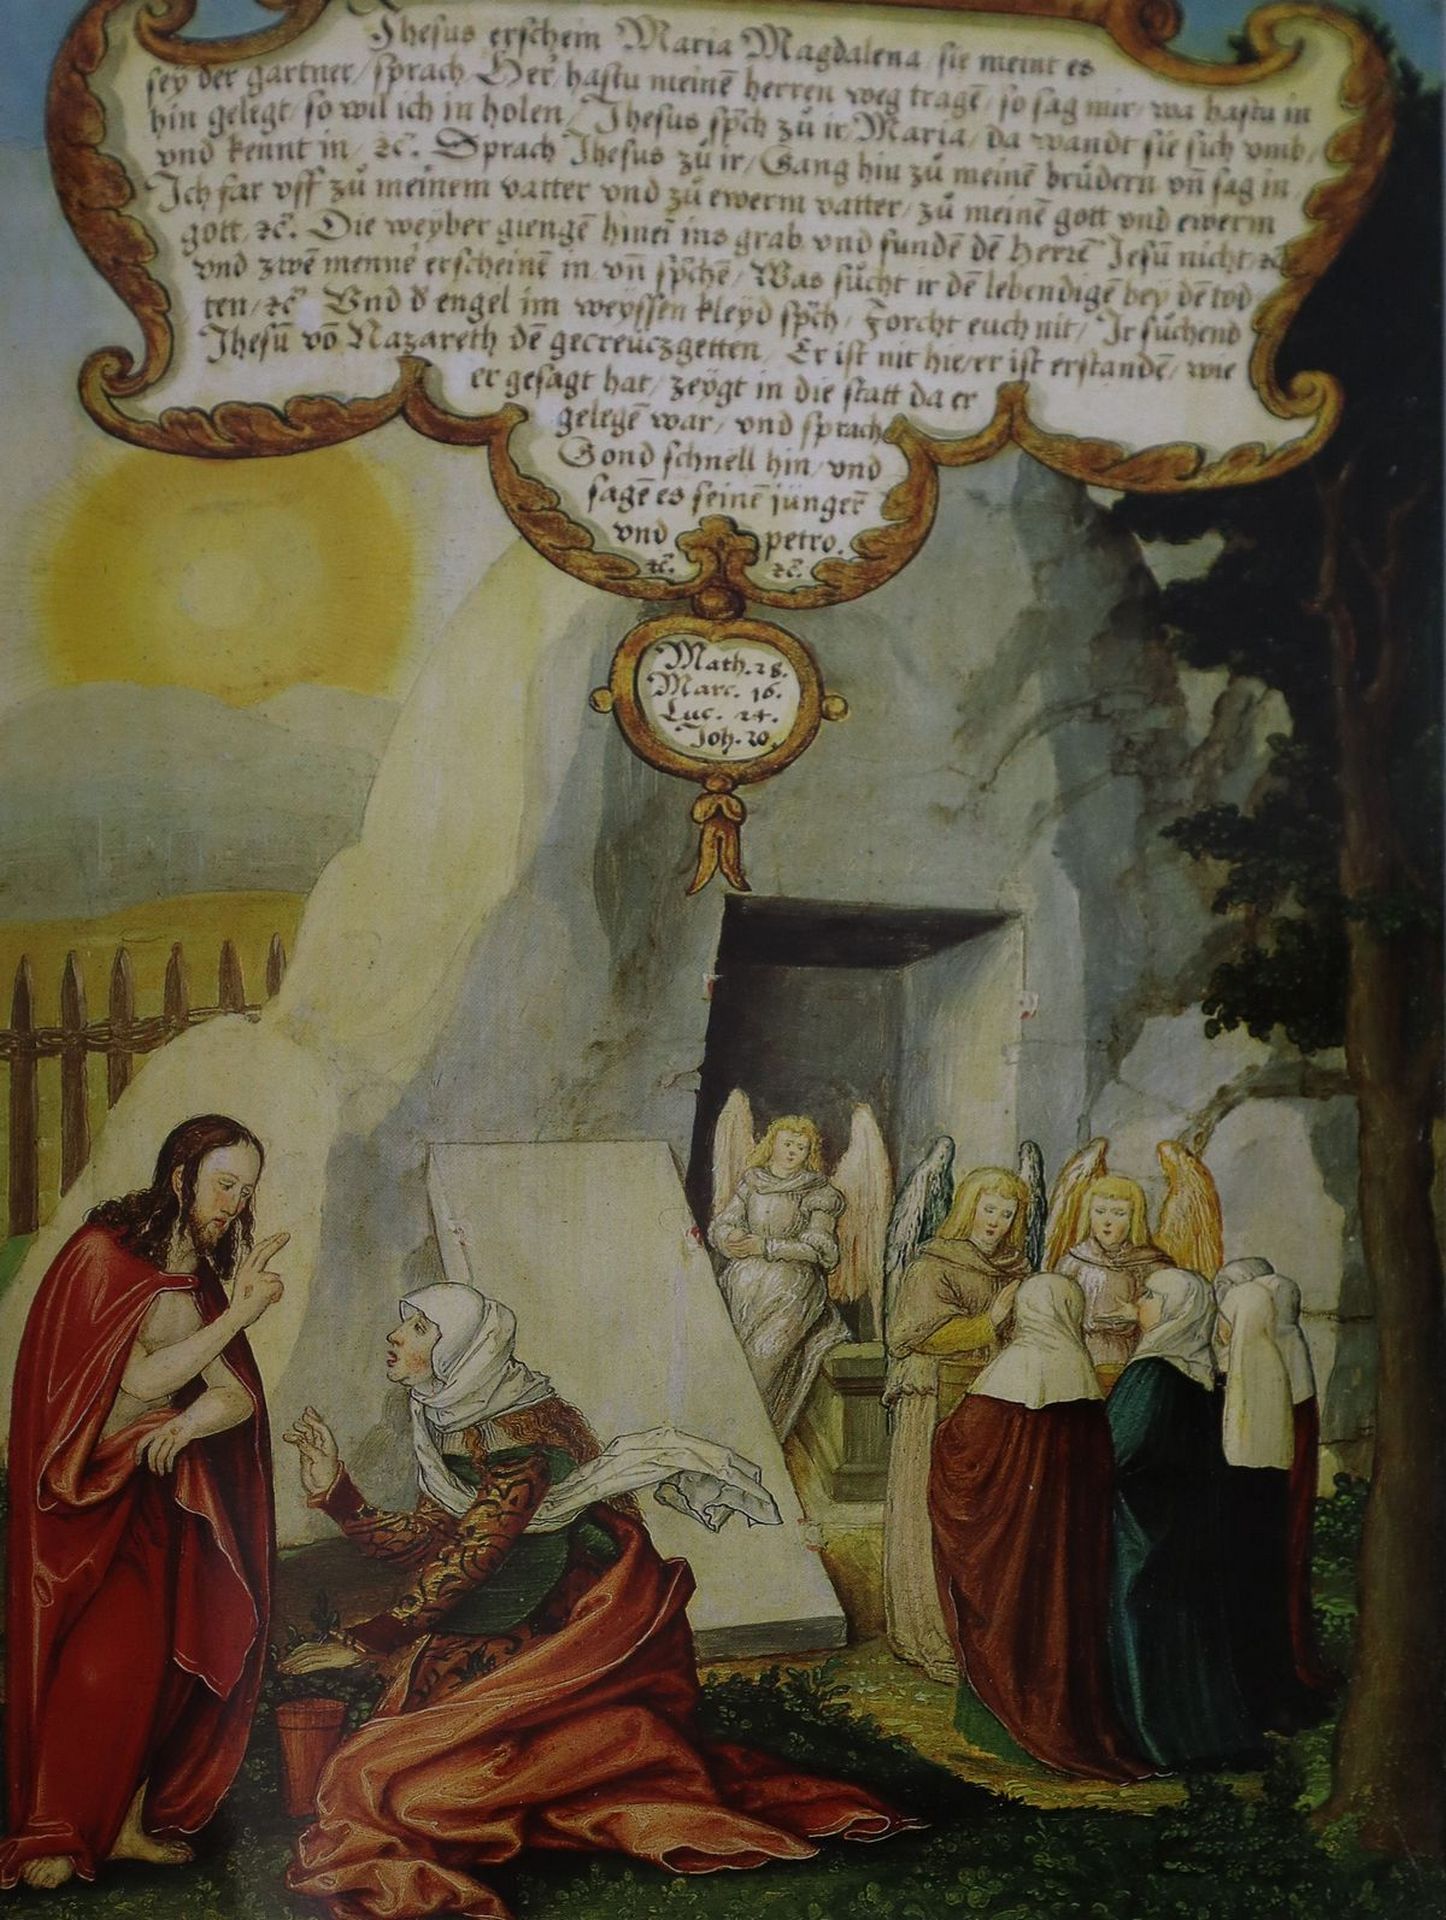 Jhesus erschein Maria Magdalena / sie meint es
sey der gartner / sprach Her / hastu meinē herren weg tragē / so sag mir / wa hastu in
hin gelegt / so wil ich in holen / Jhesus sp̄ch zů ir / Maria / da wandt sie sich vmb /
vnd kennt in / ꝛc̄. Sprach Jhesus zů ir / Gang hin zů meinē brůdern vn̄ sag in /
Ich far vff zů meinem vatter vnd zů ewerm vatter / zů meinē gott vnd ewerm
gott / ꝛc̄. Die weyber giengē hinei ̄ins grab vnd fundē dē herrē Jesū nicht / ꝛc̄
vnd zwē mennē erscheinē in / vn̄ sp̄chē / Was sůcht ir dē lebendigē bey dē tod
ten / ꝛc̄ Vnd d̄ engel im weyssen kleyd sp̄ch / Forcht euch nit / Ir sůchend
Jhesū vō Nazareth dē gecreuczgetten / Er ist nit hie / er ist erstandē / wie
er gesagt hat / zeygt in die statt da er
gelegē war / vnd sprach
Gond schnell hin / vnd
sagē es seinē jüngerē
vnd petro.
ꝛc̄. ꝛc̄.
Math. 28.
Marc. 16.
Luc. 24.
Joh. 20.